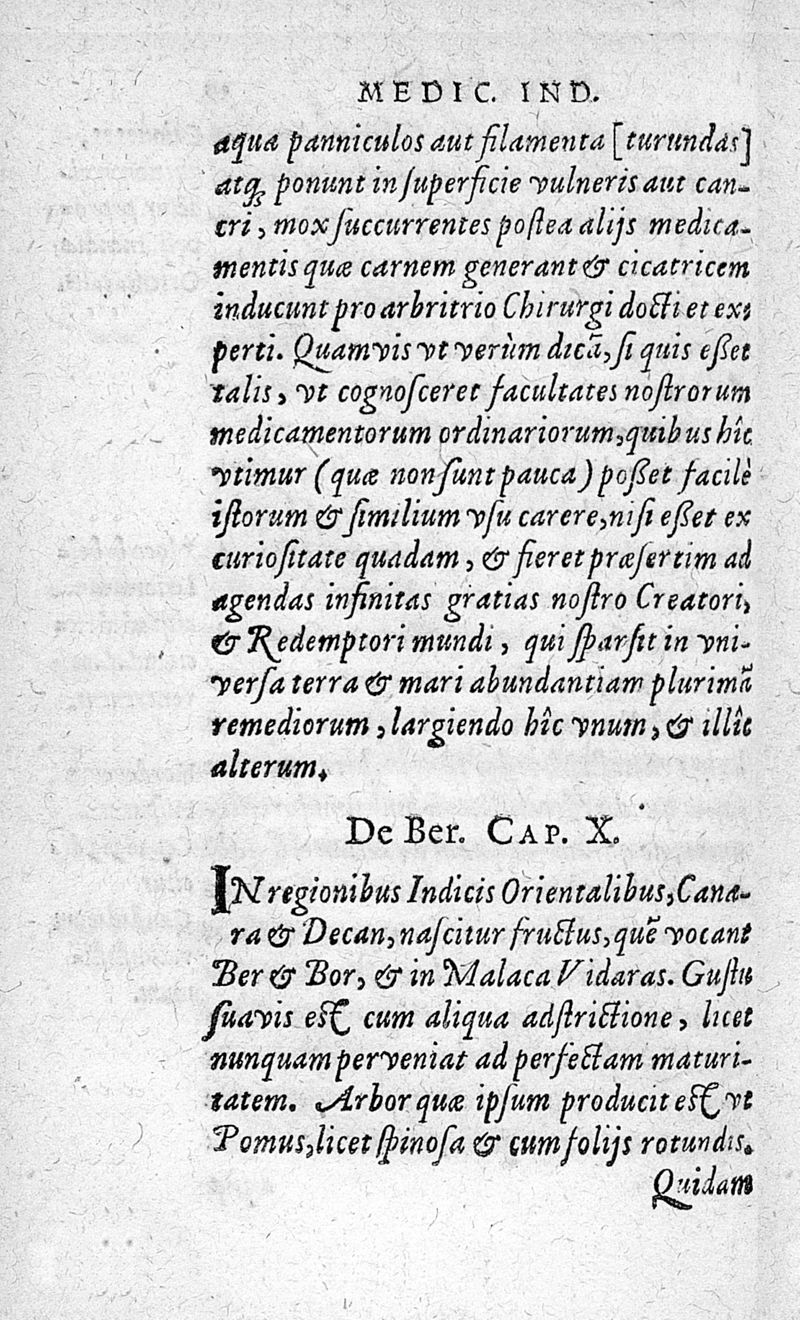 MEDIC. IND.
aqua panniculos aut filamenta [turundas]
atq́ꝫ ponunt in ſuperficie vulneris aut can-
cri, mox ſuccurrentes poſtea alijs medica-
mentis quæ carnem generant & cicatricem
inducunt pro arbitrio Chirurgi docti et ex-
perti. Quamvis vt verùm dicā, ſi quis eßet
talis, vt cognoſceret facultates noſtrorum
medicamentorum ordinariorum, quibus hîc
vtimur (quæ non ſunt pauca) poßet facilè
iſtorum & ſimilium vſu carere, niſi eßet ex
curioſitate quadam, & fieret præſertim ad
agendas infinitas gratias noſtro Creatori,
& Redemptori mundi, qui ſparſit in vni-
verſa terra & mari abundantiam plurimā
remediorum, largiendo hîc vnum, & illîc
alterum.
De Ber. CAP. X.
IN regionibus Indicis Orientalibus, Cana-
ra & Decan, naſcitur fructus, quē vocant
Ber & Bor, & in Malaca Vidaras. Guſtu
ſuavis eſt cum aliqua adſtrictione, licet
nunquam perveniat ad perfectam maturi-
tatem. Arbor quæ ipſum producit eſt vt
Pomus, licet ſpinoſa & cum folijs rotundis.
Quidam